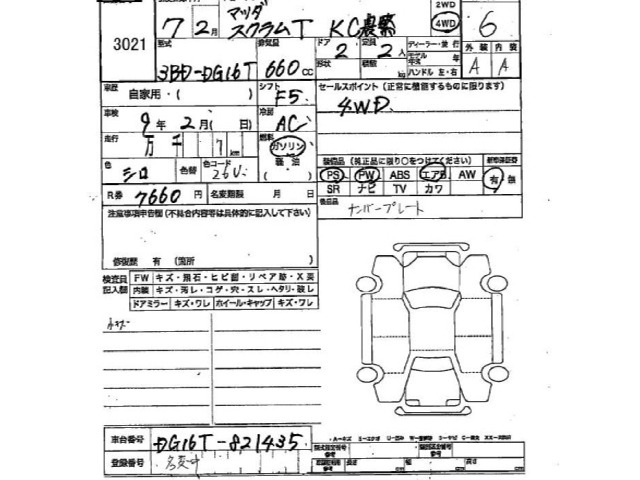 マツダ
7 2月 スクラムT KC農繁 2WD 4WD 6
3021
型式 排気量 ドア 2 定員 2人 ディーラー・並行 外装 内装
3BD-DG16T 660 cc 形状 積載 kg モデル 年 年式 ハンドル 左・右 A A
車歴 自家用・( ) シフト F5 セールスポイント(正常に機能するものに限ります)
車検 9年 2月( 日) 冷房 AC 4WD
走行 万 千 7km 燃料 ガソリン 軽油
装備品(純正品に限り○をつけてください) 新車保証書
色 シロ 色替 色コード 26U PS PW ABS エアB AW 有 無
SR ナビ TV カワ
R券 7660円 名変期限 月 日 備品
ナンバープレート
注意事項申告欄(不具合内容等は具体的に記入して下さい)
修復歴 有(箇所
検査員記入欄 FW キズ・飛石・ヒビ割・リペア跡・X要
内装 キズ・汚レ・コゲ・穴・スレ・ヘタリ・破レ
ドアミラー キズ・ワレ ホイール・キャップ キズ・ワレ
車台番号 DG16T-821435
登録番号 名変中